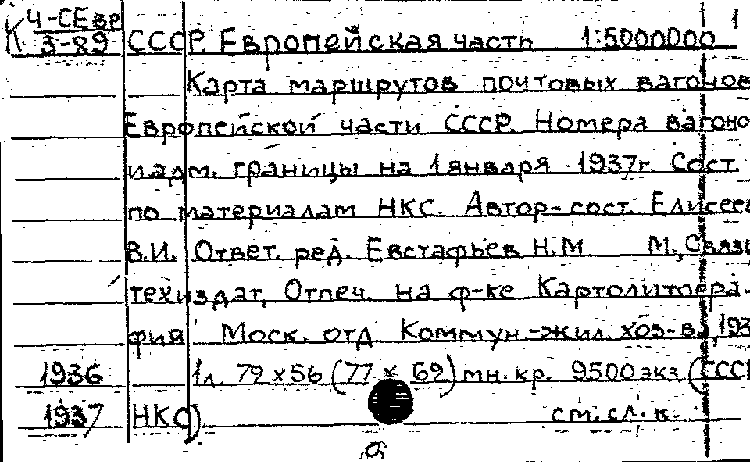 К Ч-СЕвр 1
3-89 СССР. Европейская часть 1:5000000
Карта маршрутов почтовых вагонов
Европейской части СССР. Номера вагоно
и адм. границы на 1 января 1937г. Сост.
по материалам НКС. Автор-сост. Елисеев
В.И. Ответ. ред. Евстафьев Н.М М., Связь
техиздат, Отпеч. на ф-ке Картолитогра-
фия Моск. отд Коммун-жил. хоз-ва, 193
1936 1л. 79×56 (77× 62) мн. кр. 9500 экз. (СССР
1937 НКС) см. сл. к.